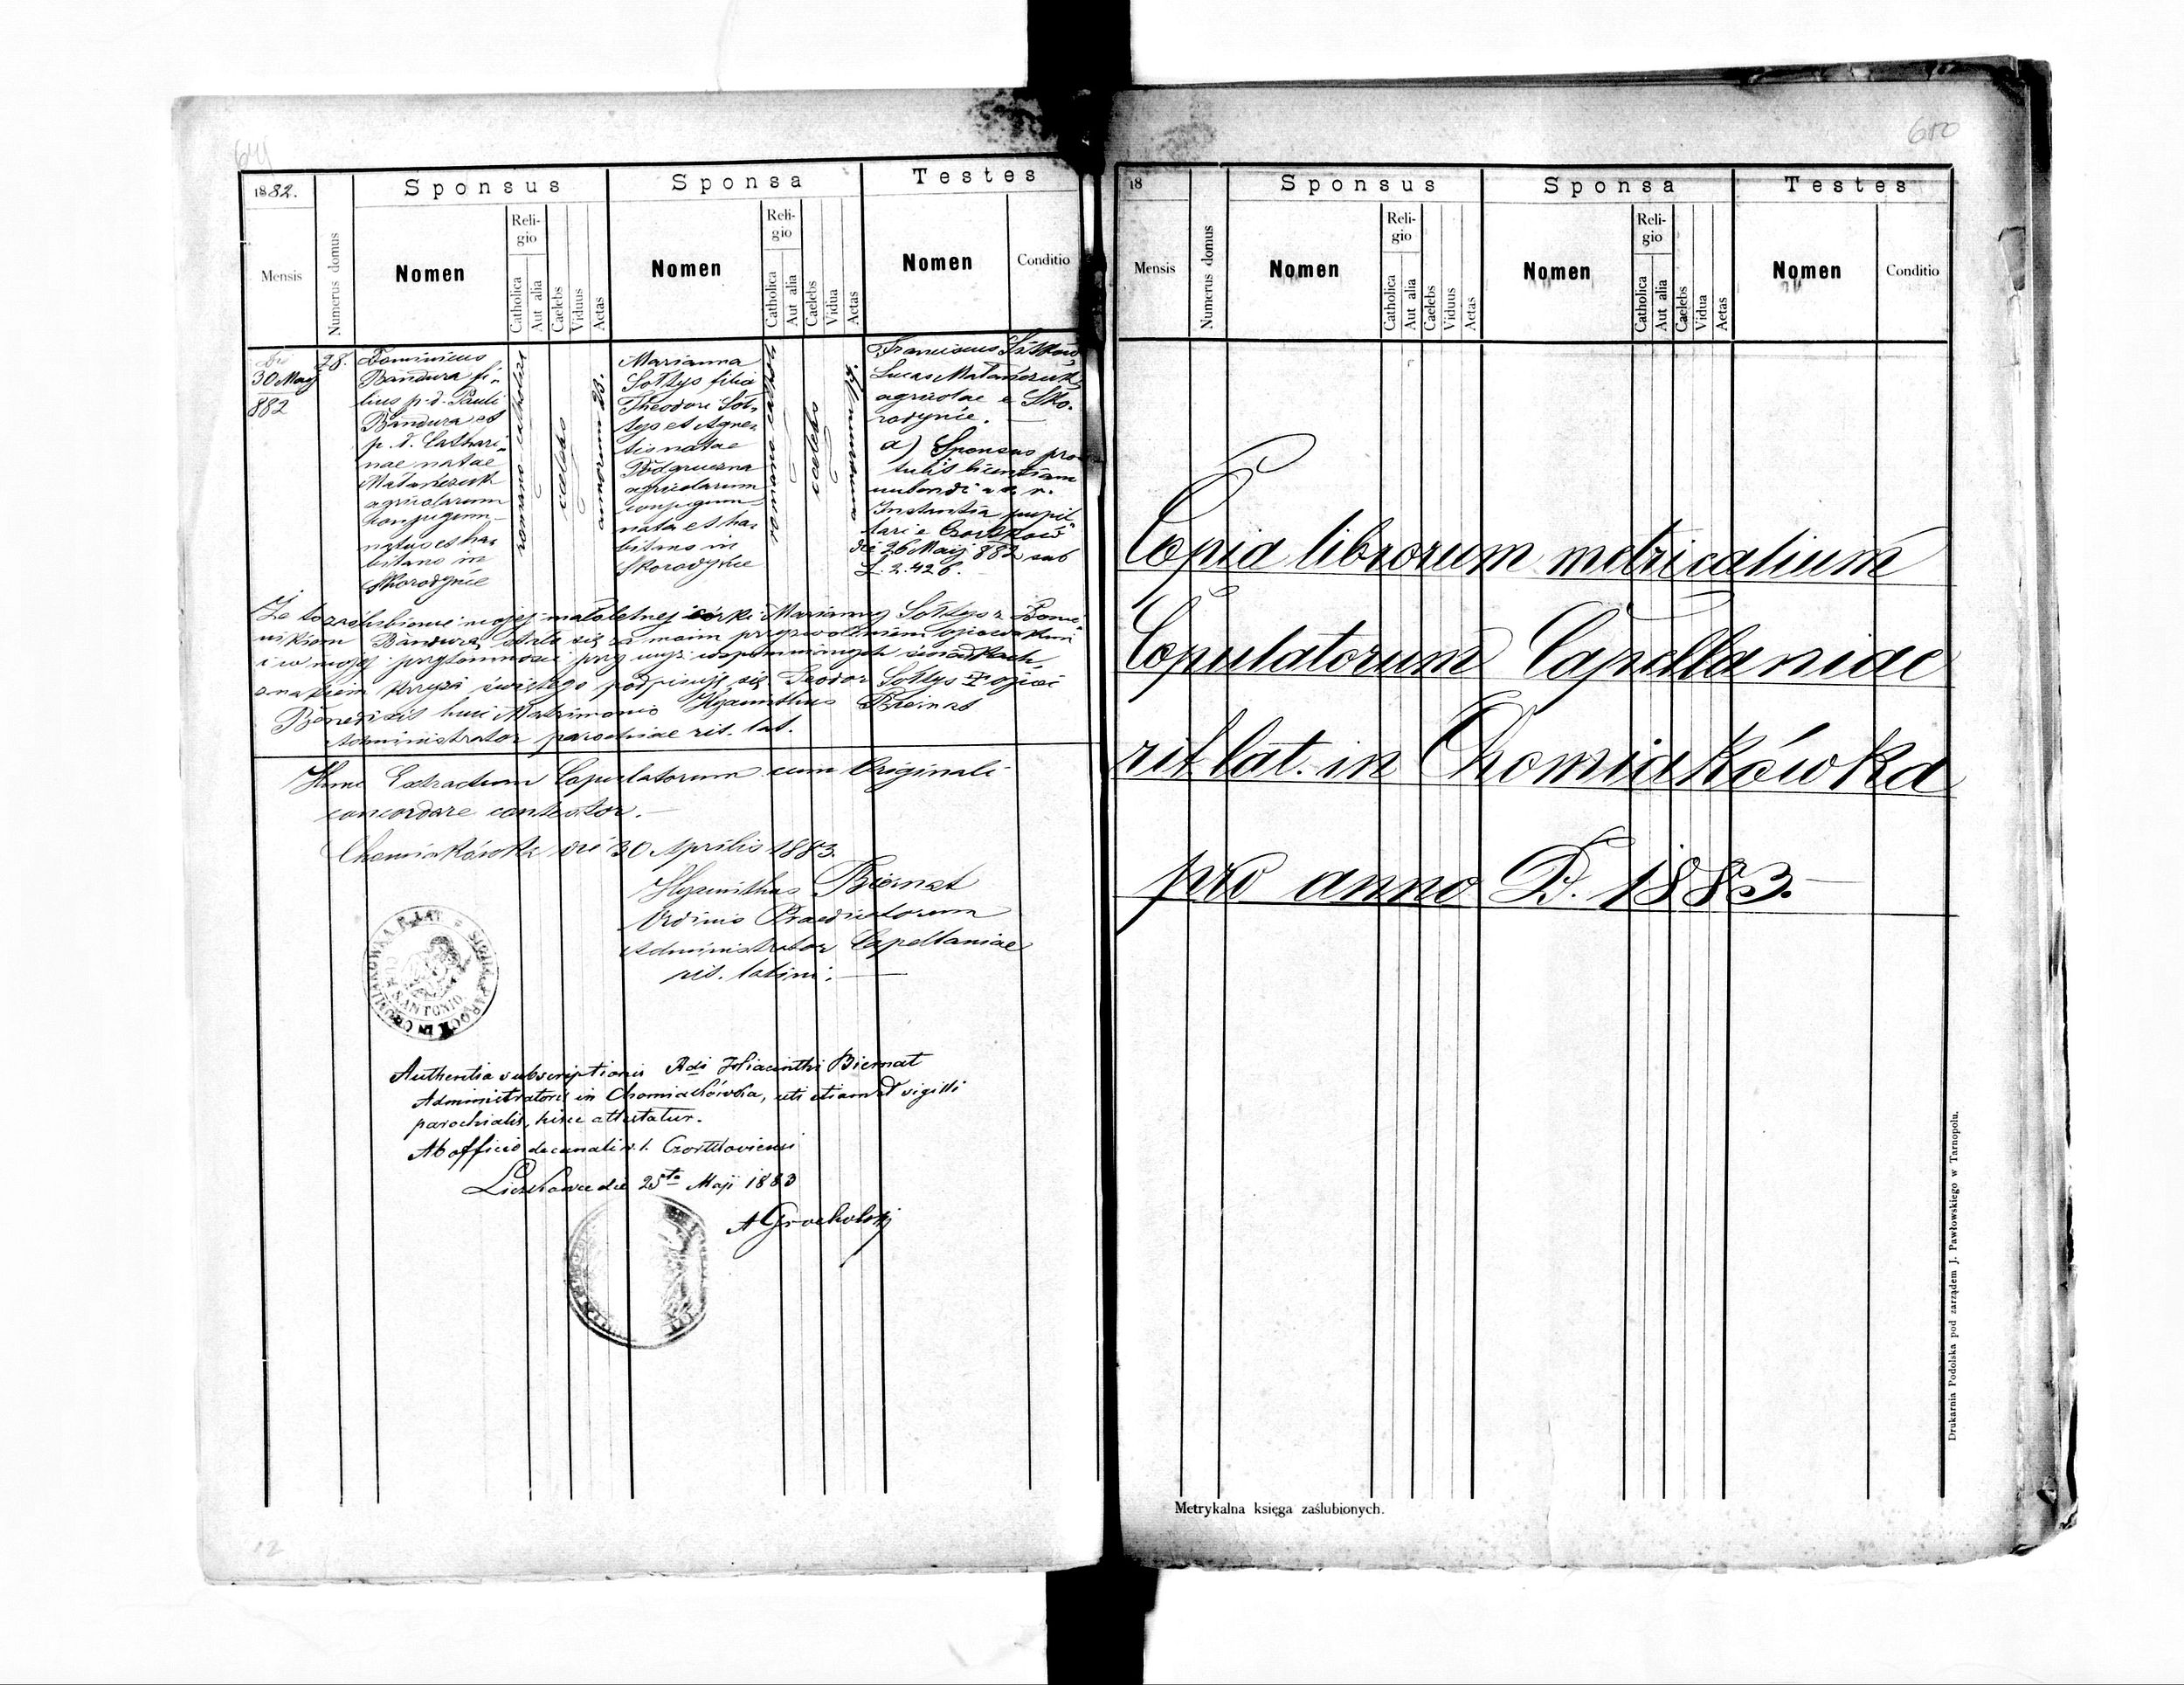 1882.
Sponsus
Sponsa
Testes
Mensis
Numerus domus
Nomen
Religio
Catholica
Aut alia
Caelebs
Viduus
Aetas
Nomen
Religio
Catholica
Aut alia
Caelebs
Vidua
Aetas
Nomen
Conditio
30 Maij
882
28.
Dominicus
Bandura fi-
lius p. d. Pauli
Bandura et
p. d. Cathari-
nae natae
agricolarum
conjugum
natus et ha-
bitans in
Skorodyńce
romano catholica
caelebs
annorum 23.
Marianna
Sołtys filia
Theodori Soł-
tys et Agne-
tis natae
Podgruszna
agricolarum
conjugum
nata et ha-
bitans in
Skorodyńce
caelebs
Franciscus
Lucas
agricolae e Sko-
rodyńce.
a) Sponsus pro-
tulit licentiam
nubendi a
Instantia pupil-
lari e Czortków
die 26 Maij 882 sub
L. 2.426.
Że to zaślubienie mojej małoletniej córki Marianny Sołtys z Domi-
nikiem Bandurą stało się za moim przyzwoleniem ojcowskim
i w mojej przytomności przy wyż wspomnionych świadkach,
znakiem krzyża świętego podpisuję się Teodor Sołtys + ojciec
Benedixit huic Matrimonio Hyacinthus Biernat
Administrator parochiae rit. lat.
Hunc Extractum Copulatorum cum Originali
concordare contestor.
Chomiakówka die 30 Aprilis 1883.
Hyacinthus Biernat
Ordinis Praedicatorum
Administrator Capellaniae
rit. latini.
Authentia subscriptionis Rdi Hiacinthi Biernat
Administratoris in Chomiakówka, uti etiam et sigilli
parochialis, hisce attestatur.
Ab officio decanali r. l. Czortkoviensi
die 25ta Maji 1883
A Grocholski
18
Sponsus
Sponsa
Testes
Mensis
Numerus domus
Nomen
Religio
Catholica
Aut alia
Caelebs
Viduus
Aetas
Nomen
Religio
Catholica
Aut alia
Caelebs
Vidua
Aetas
Nomen
Conditio
Copia librorum metricalium
Copulatorum Capellaniae
rit lat. in Chomiakówka
pro anno D. 1883.
Metrykalna księga zaślubionych.
Drukarnia Podolska pod zarządem J. Pawłowskiego w Tarnopolu.